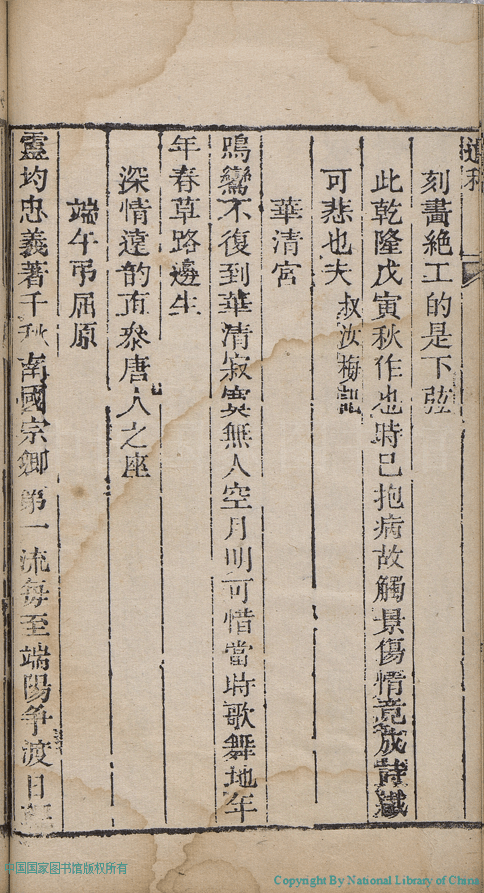 刻畫絶工的是下弦
此乾隆戊寅秋作也時已抱病故觸景傷情竟成詩讖
可悲也夫 叔汝梅記
華清宮
鳴鸞不復到華清寂寞無人空月明可惜當時歌舞地年
年春草路邊生
深情遠韵直參唐人之座
端午弔屈原
靈均忠義著千秋南國宗卿第一流每至端陽争渡日
中国国家图书馆版权所有
Copyright By National Library of China